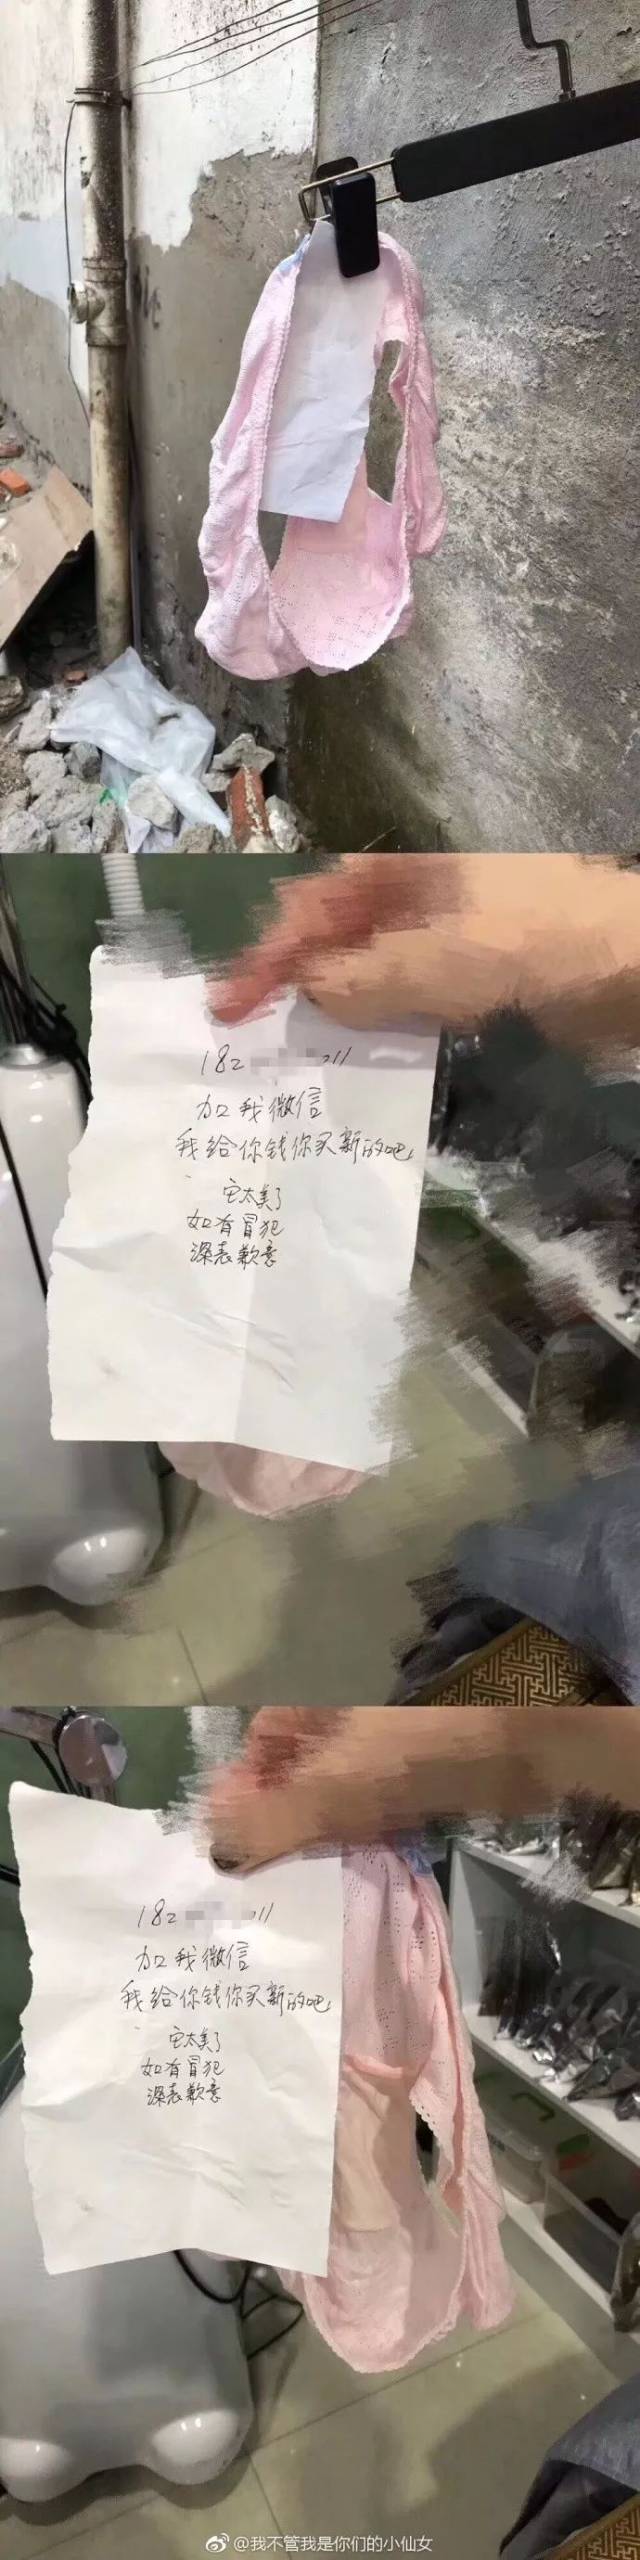 182 11
加我微信
我给你钱你买新的吧
它太美了
如有冒犯
深表歉意
182 11
加我微信
我给你钱你买新的吧
它太美了
如有冒犯
深表歉意
@我不管我是你们的小仙女